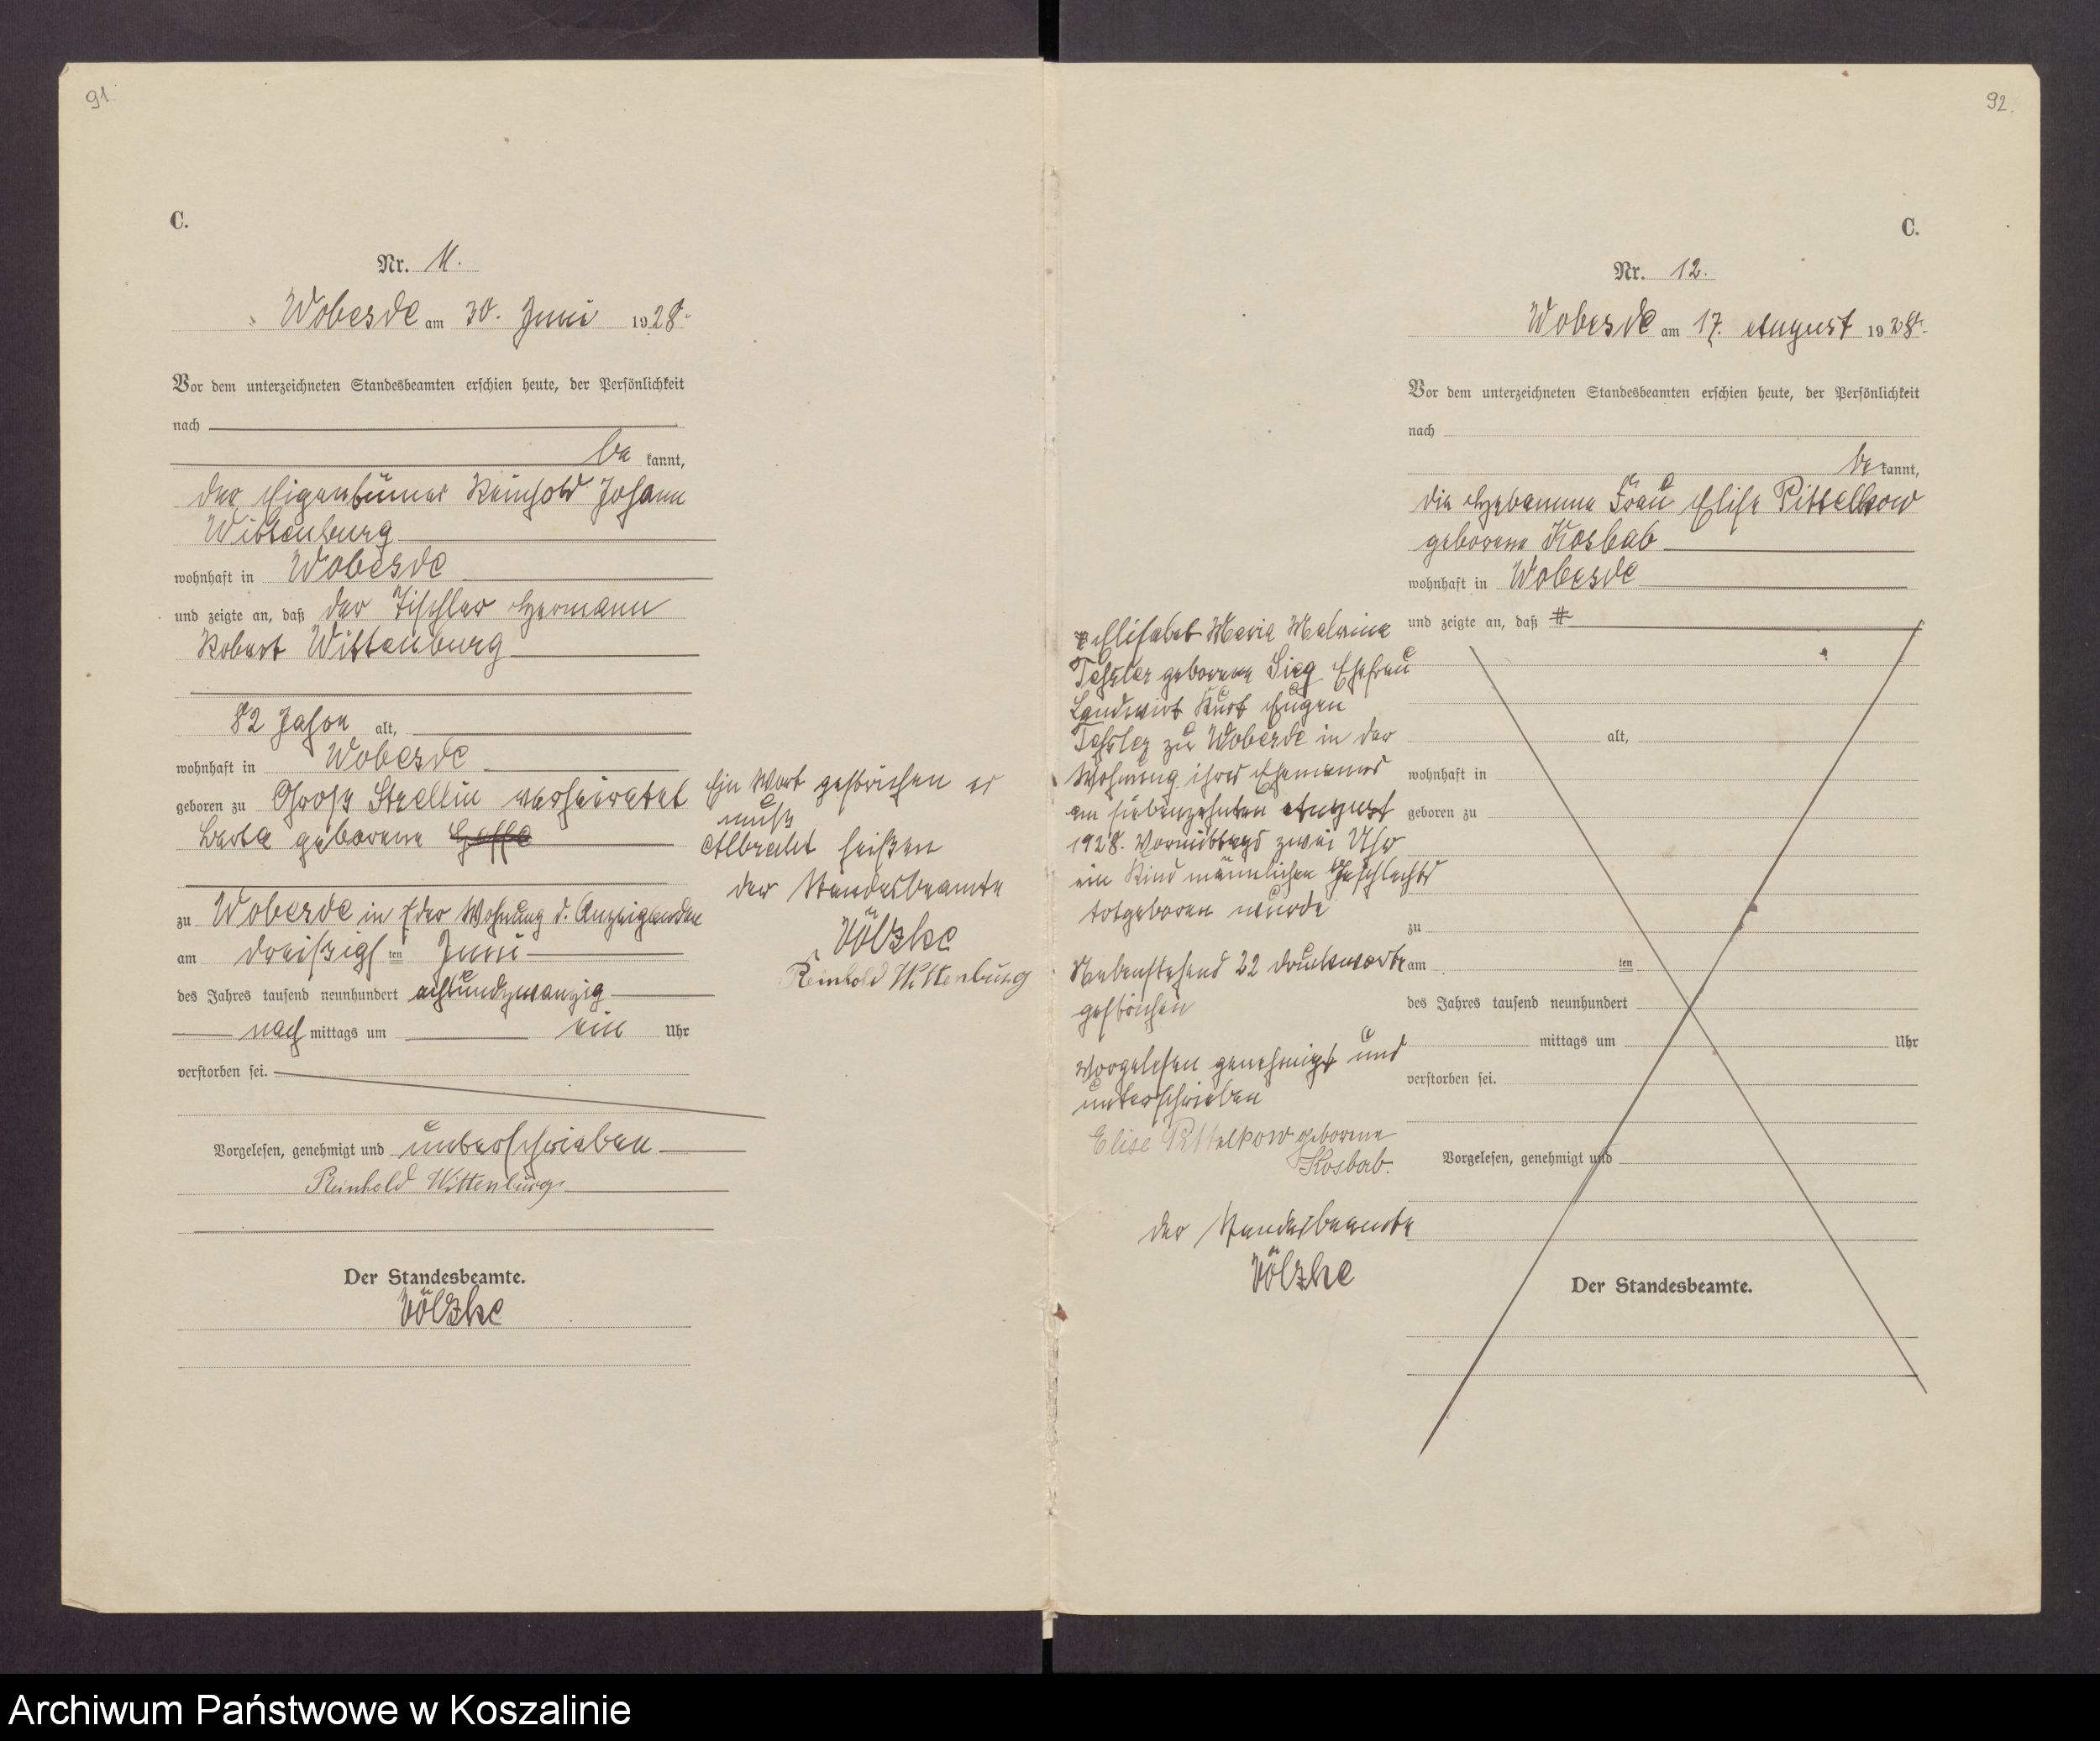 91.
C.
Nr. 11.
Wobesde am 30. Juni 1928.
Vor dem unterzeichneten Standesbeamten erschien heute, der Persönlichkeit
nach
be kannt,
der Eigentümer Reinhold Johann
Wittenburg
wohnhaft in Wobesde
und zeigte an, daß der Tischler Hermann
Robert Wittenburg
82 Jahre alt,
wohnhaft in Wobesde
geboren zu Groß Strellin verheiratet
Berta geborene
zu Wobesde in der Wohnung d. Anzeigenden
am dreißigs ten Juni
des Jahres tausend neunhundert achtundzwanzig
nach mittags um ein Uhr
verstorben sei.
Vorgelesen, genehmigt und unterschrieben
Reinhold Wittenburg
Der Standesbeamte.
Völzke
Ein Wort gestrichen es
muß
Albrecht heißen
der Standesbeamte
Völzke
Reinhold Wittenburg
92.
C.
Nr. 12.
Wobesde am 17. August 1928.
Vor dem unterzeichneten Standesbeamten erschien heute, der Persönlichkeit
nach
be kannt,
die Hebamme Frau Elise Pittelkow
geborene Kosbab
wohnhaft in Wobesde
und zeigte an, daß #
alt,
wohnhaft in
geboren zu
zu
am ten
des Jahres tausend neunhundert
mittags um Uhr
verstorben sei.
Vorgelesen, genehmigt und
Der Standesbeamte.
Elisabet Maria
geborene Sieg Ehefrau
Landwirt Kurt Eugen
zu Wobesde in der
Wohnung ihres Ehemannes
am siebenzehnten August
1928. Vormittags zwei Uhr
ein Kind männlichen Geschlechts
totgeboren wurde
Nebenstehend 22 Druckworte
gestrichen
Vorgelesen genehmigt und
unterschrieben
Elise Pittelkow geborene
Kosbab.
der Standesbeamte
Völzke
Archiwum Państwowe w Koszalinie